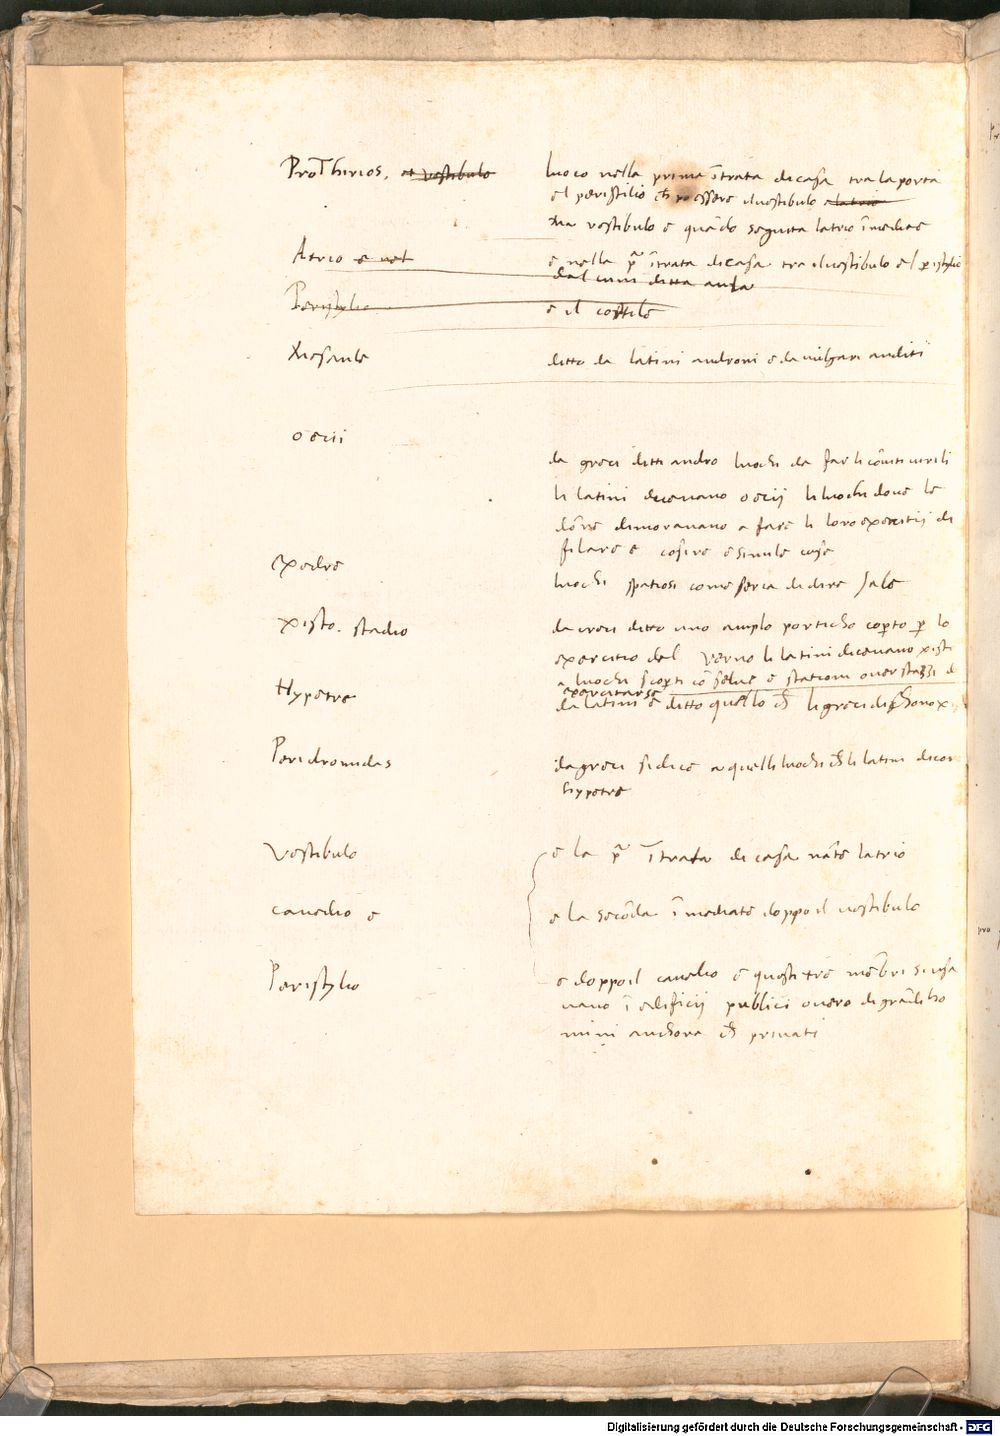 ProThirios. et vestibulo luoco nella prima ĩtrata di casa tra la porta
el peristilio ch̃ po essere il vestibulo e latrio
ma vestibulo e quãdo seguita latrio ĩmediate
Atrio e nel e nella pᵃ ĩtrata di casa tra il vestibulo el p̱istylio
dal cuni ditta aula
Peristylio e il cortile
Mesaule ditto da latini androni e da vulgari anditi
oecii
da greci ditti andro luochi da far li cõviti virili
li latini diceuano oecij li luochi doue le
dõne dimorauano a fare li loro exercitij di
filare e cosire e simile cose
exedre luochi spatiosi come seria di dire sale
xisto. stadio da greci ditto uno amplo porticho cop̱to p̱ lo
exercitio del verno li latini diceuano xisti
a luochi scop̱ti cõ selue e stationi over stazzi
exercitarse
Hypetre da latini e ditto quello ch̃ li greci dischono
Peridromidas da greci si dice a quelli luochi ch̃ li latini
hypetre
Vestibulo e la pᵃ ĩtrata di casa nãte latrio
cavedio e e la secõda ĩmediate doppo il vestibulo
Peristylio e doppo il cavedio e questi tre mẽbri si usa
uano ĩ edificij publici overo di grãdi ho
mini anchora ch̃ privati
pro
Digitalisierung gefördert durch die Deutsche Forschungsgemeinschaft - DFG